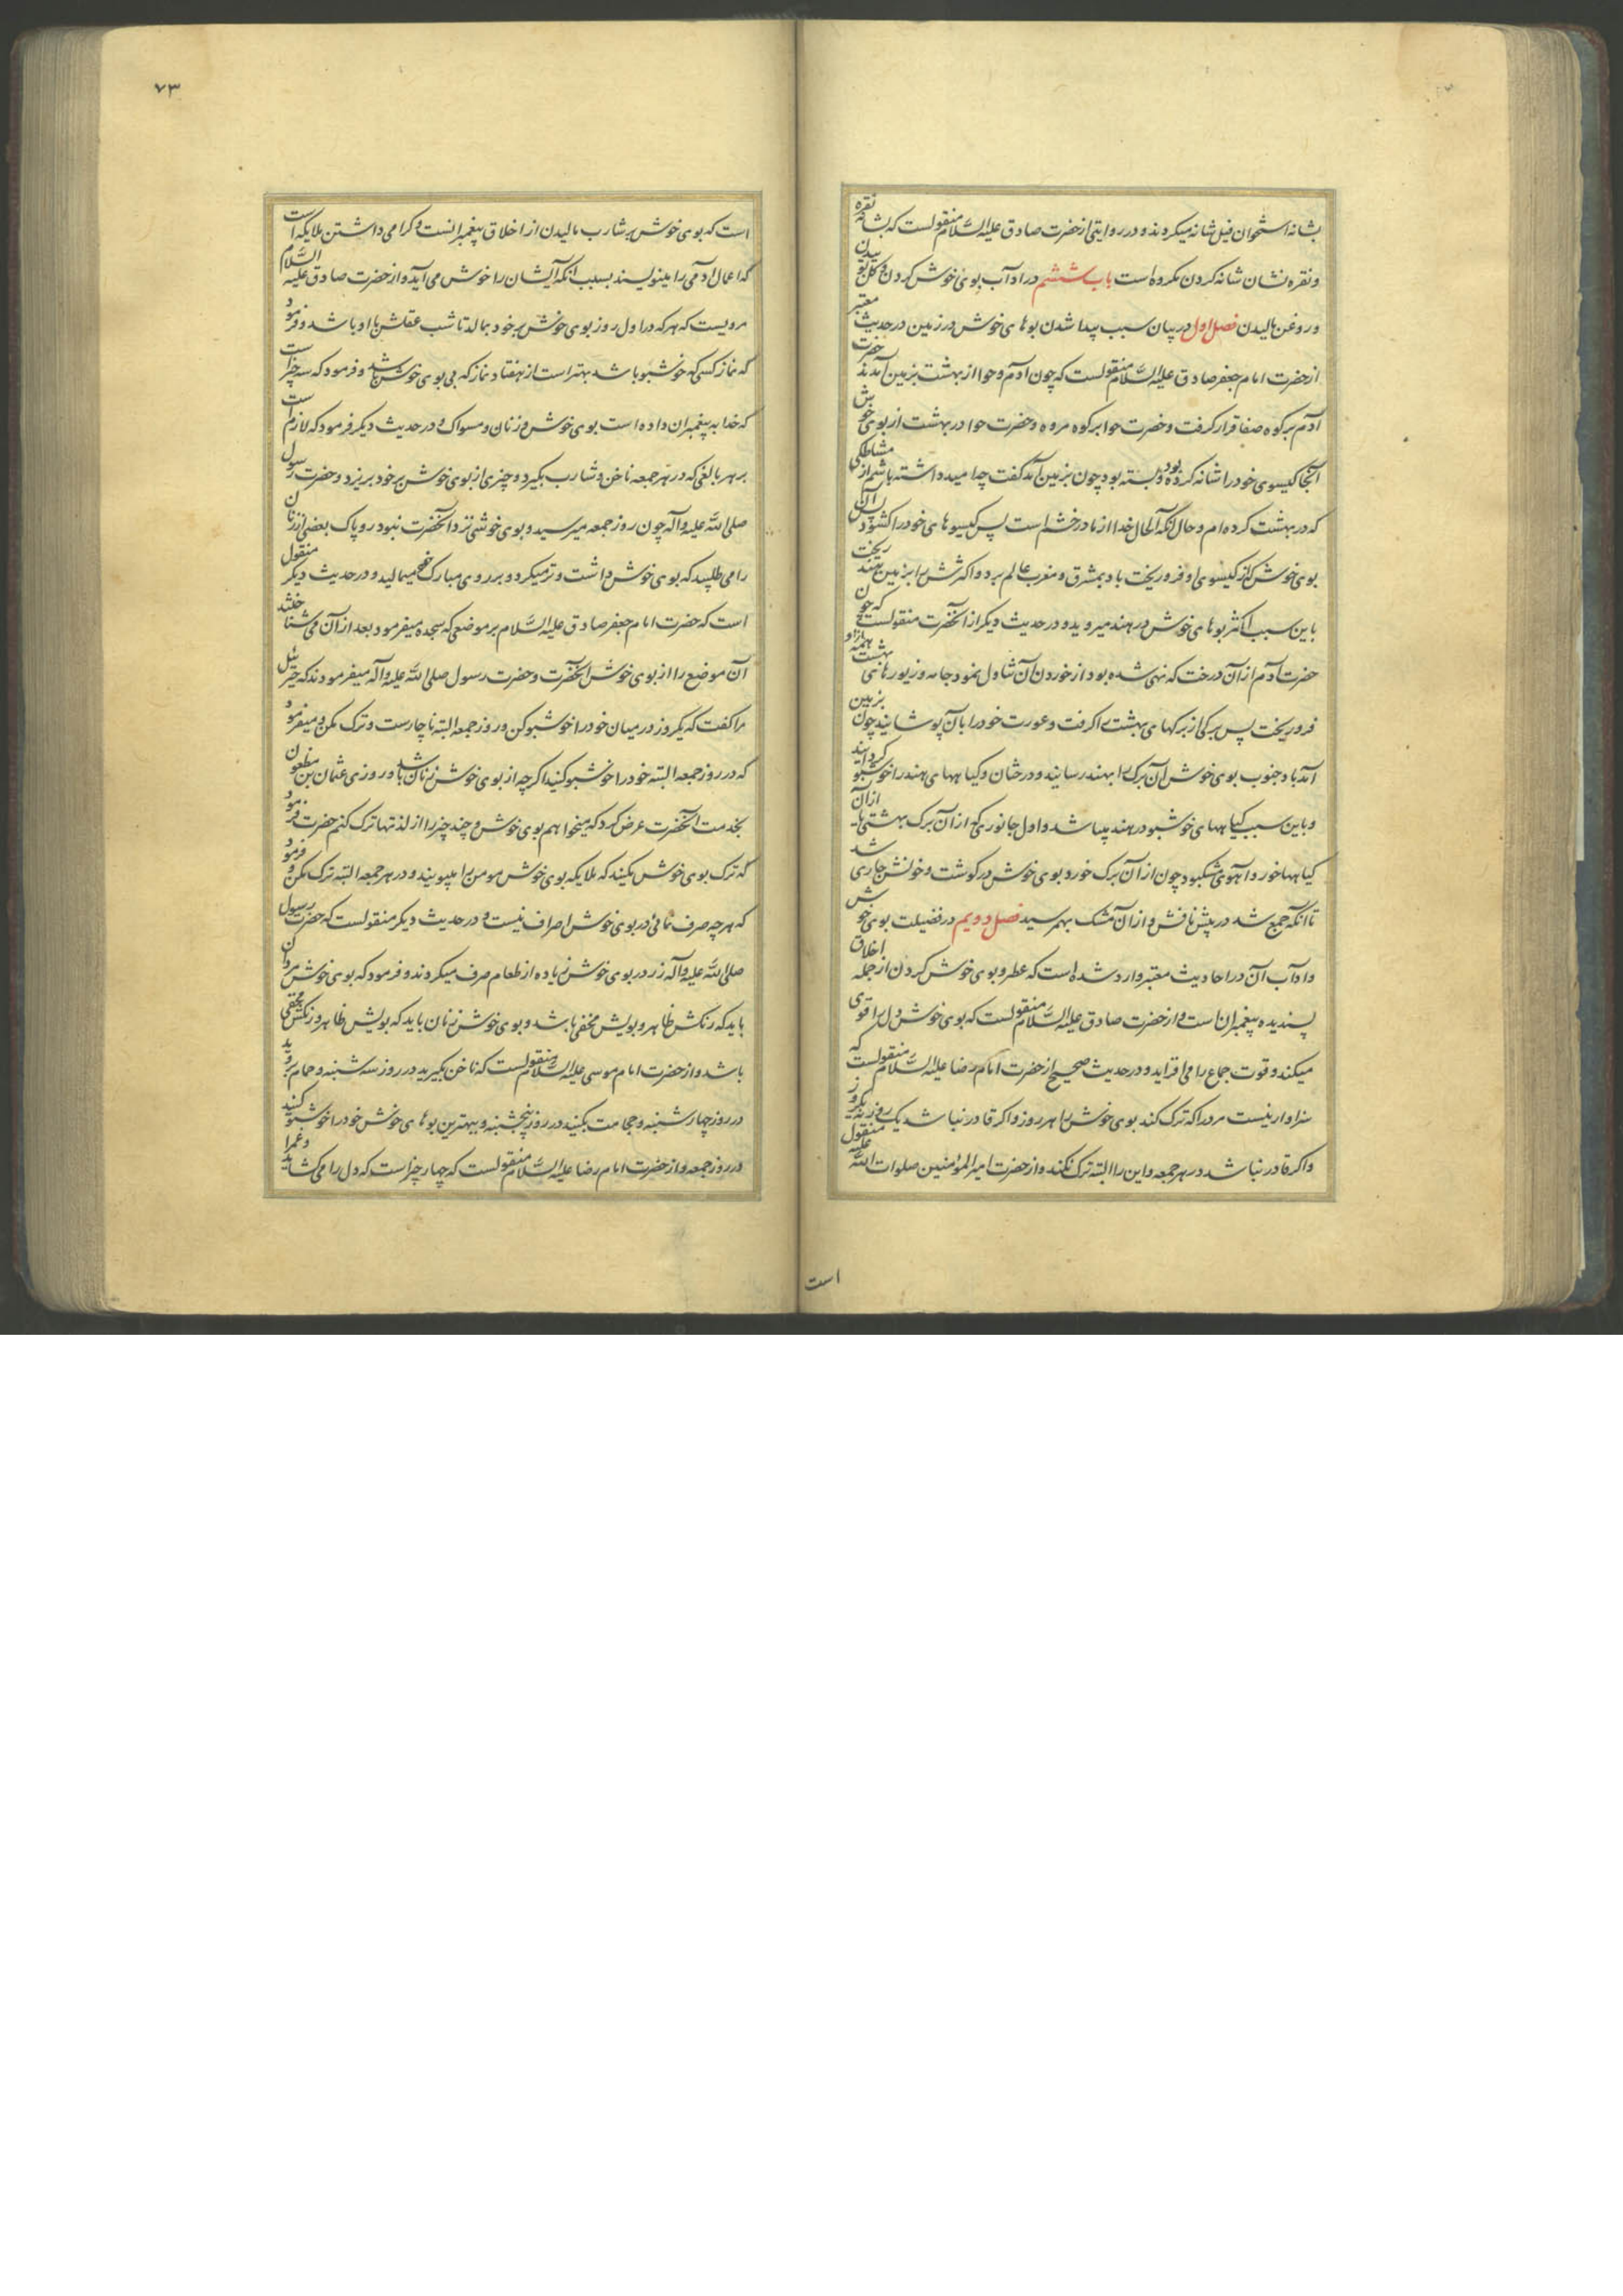 بشانه استخوان فیل شانه میکردند و در روایتی از حضرت صادق علیه السّلام منقولست که بشانه نقره
و نقره نشان شانه کردن مکروه است باب ششم در اداب بوی خوش کردن و کل بوئیدن
و روغن مالیدن فصل اول در بیان سبب پیدا شدن بوهای خوش در زمین در حدیث معتبر
از حضرت امام جعفر صادق علیه السّلام منقولست که چون آدم و حوا از بهشت بزمین آمدند حضرت
آدم بر کوه صفا قرار کرفت و حضرت حوا بر کوه مروه و حضرت حوا در بهشت از بوی خوش
آنجا کیسوی خود را شانه کرده و بسته بود چون بزمین آمد کفت چه امید داشته باشم از مشاطکی
که در بهشت کرده ام و حال آنکه الحال خدا از ما در خشم است پس کیسوهای خود را کشود پس آن
بوی خوش که از کیسوی او فرو ریخت باد بمشرق و مغرب عالم برد و اکثرش را بزمین هند ریخت
باین سبب اکثر بوهای خوش در هند میروید و در حدیث دیکر از آنحضرت منقولست که چون
حضرت آدم از آن درخت که نهی شده بود از خوردن آن تناول نمود جامه و زیورهای بهشت همه از او
فرو ریخت پس برکی از برکهای بهشت را کرفت و عورت خود را بآن پوشانید چون بزمین
آمد باد جنوب بوی خوش آن برک را بهند رسانید و درختان و کیاههای هند را خوشبو کردانید
و باین سبب کیاههای خوشبو در هند پیدا شد و اول جانوری که از آن برک بهشتی یا از آن
کیاهها خورد آهوی مشکبود چون از آن برک خورد بوی خوش در کوشت و خونش جاری شد
تا آنکه جمع شد در پیش نافش و از آن مشک بهمرسید فصل دویم در فضیلت بوی خوش
و اداب آن در احادیث معتبر وارد شده است که عطر و بوی خوش کردن از جمله اخلاق
پسندیده پیغمبران است و از حضرت صادق علیه السّلام منقولست که بوی خوش دل را قوی
میکند و قوت جماع را می افزاید و در حدیث صحیح از حضرت امام رضا علیه السّلام منقولست که
سزاوار نیست مرد را که ترک کند بوی خوش را هر روز و اکر قادر نباشد یک روز نه یکروز
و اکر قادر نباشد در هر جمعه و این را البته ترک نکند و از حضرت امیرالمؤمنین صلوات الله علیه منقول
است
۷۳
است که بوی خوش بر شارب مالیدن از اخلاق پیغمبرانست و کرامی داشتن ملایکه است
که اعمال ادمی را مینویسند بسبب انکه ایشان را خوش می آید و از حضرت صادق علیه السّلام
مرویست که هر که در اول روز بوی خوش بر خود بمالد تا شب عقلش با او باشد و فرمود
که نماز کسی که خوشبو باشد بهتر است از هفتاد نماز که بی بوی خوش باشد و فرمود که سه چیز است
که خدا به پیغمبران داده است بوی خوش و زنان و مسواک و در حدیث دیکر فرمود که لازم است
بر هر بالغی که در هر جمعه ناخن و شارب بکیرد و چیزی از بوی خوش بر خود بریزد و حضرت رسول
صلی الله علیه و آله چون روز جمعه میرسید و بوی خوشی نزد آنحضرت نبود روپاک بعضی از زنان
را می طلبید که بوی خوش داشت و تر میکرد و بر روی مبارک خود میمالید و در حدیث دیکر منقول
است که حضرت امام جعفر صادق علیه السّلام بر موضعی که سجده میفرمود بعد از آن می شناختند
آن موضع را از بوی خوش آنحضرت و حضرت رسول صلی الله علیه و آله میفرمودند که جبرئیل
مرا کفت که یکروز در میان خود را خوشبو کن و روز جمعه البته ناچارست و ترک مکن و میفرمود
که در روز جمعه البته خود را خوشبو کنید اکرچه از بوی خوش زنان باشد و روزی عثمان بن مظعون
بخدمت آنحضرت عرض کرد که میخواهم بوی خوش و چند چیز را از لذتها ترک کنم حضرت فرمود
که ترک بوی خوش مکنید که ملایکه بوی خوش مومن را میبویند و در هر جمعه البته ترک مکن و فرمود
که هرچه صرف نمائی در بوی خوش اصراف نیست و در حدیث دیکر منقولست که حضرت رسول
صلی الله علیه و آله زر در بوی خوش زیاده از طعام صرف میکردند و فرمود که بوی خوش مردان
باید که رنکش ظاهر و بویش مخفی باشد و بوی خوش زنان باید که بویش ظاهر و رنکش مخفی
باشد و از حضرت امام موسی علیه السّلام منقولست که ناخن بکیرید در روز سه شنبه و حمام بروید
در روز چهارشنبه و حجامت بکنید در روز پنجشنبه و ببهترین بوهای خوش خود را خوشبو کنید
در روز جمعه و از حضرت امام رضا علیه السّلام منقولست که چهار چیز است که دل را می کشاید و غم را